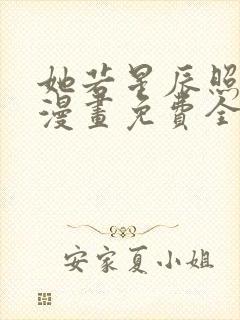 她若星辰照
漫畫免費全
安家夏小姐